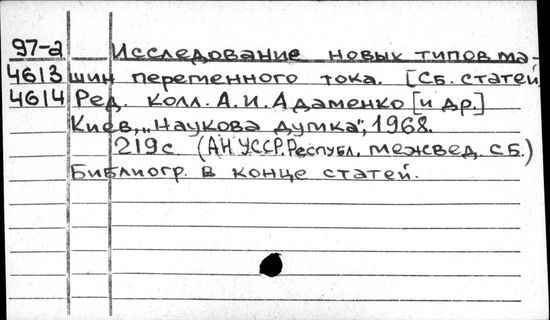 97-а Исследование новых типов ма-
4613 шин переменного тока. [Сб. статей
4614 Ред. колл. А.И. Адаменко [и др.]
Киев, „Наукова думка", 1968.
219с. (АН УССР. Республ. межвед. сб.)
Библиогр. в конце статей.